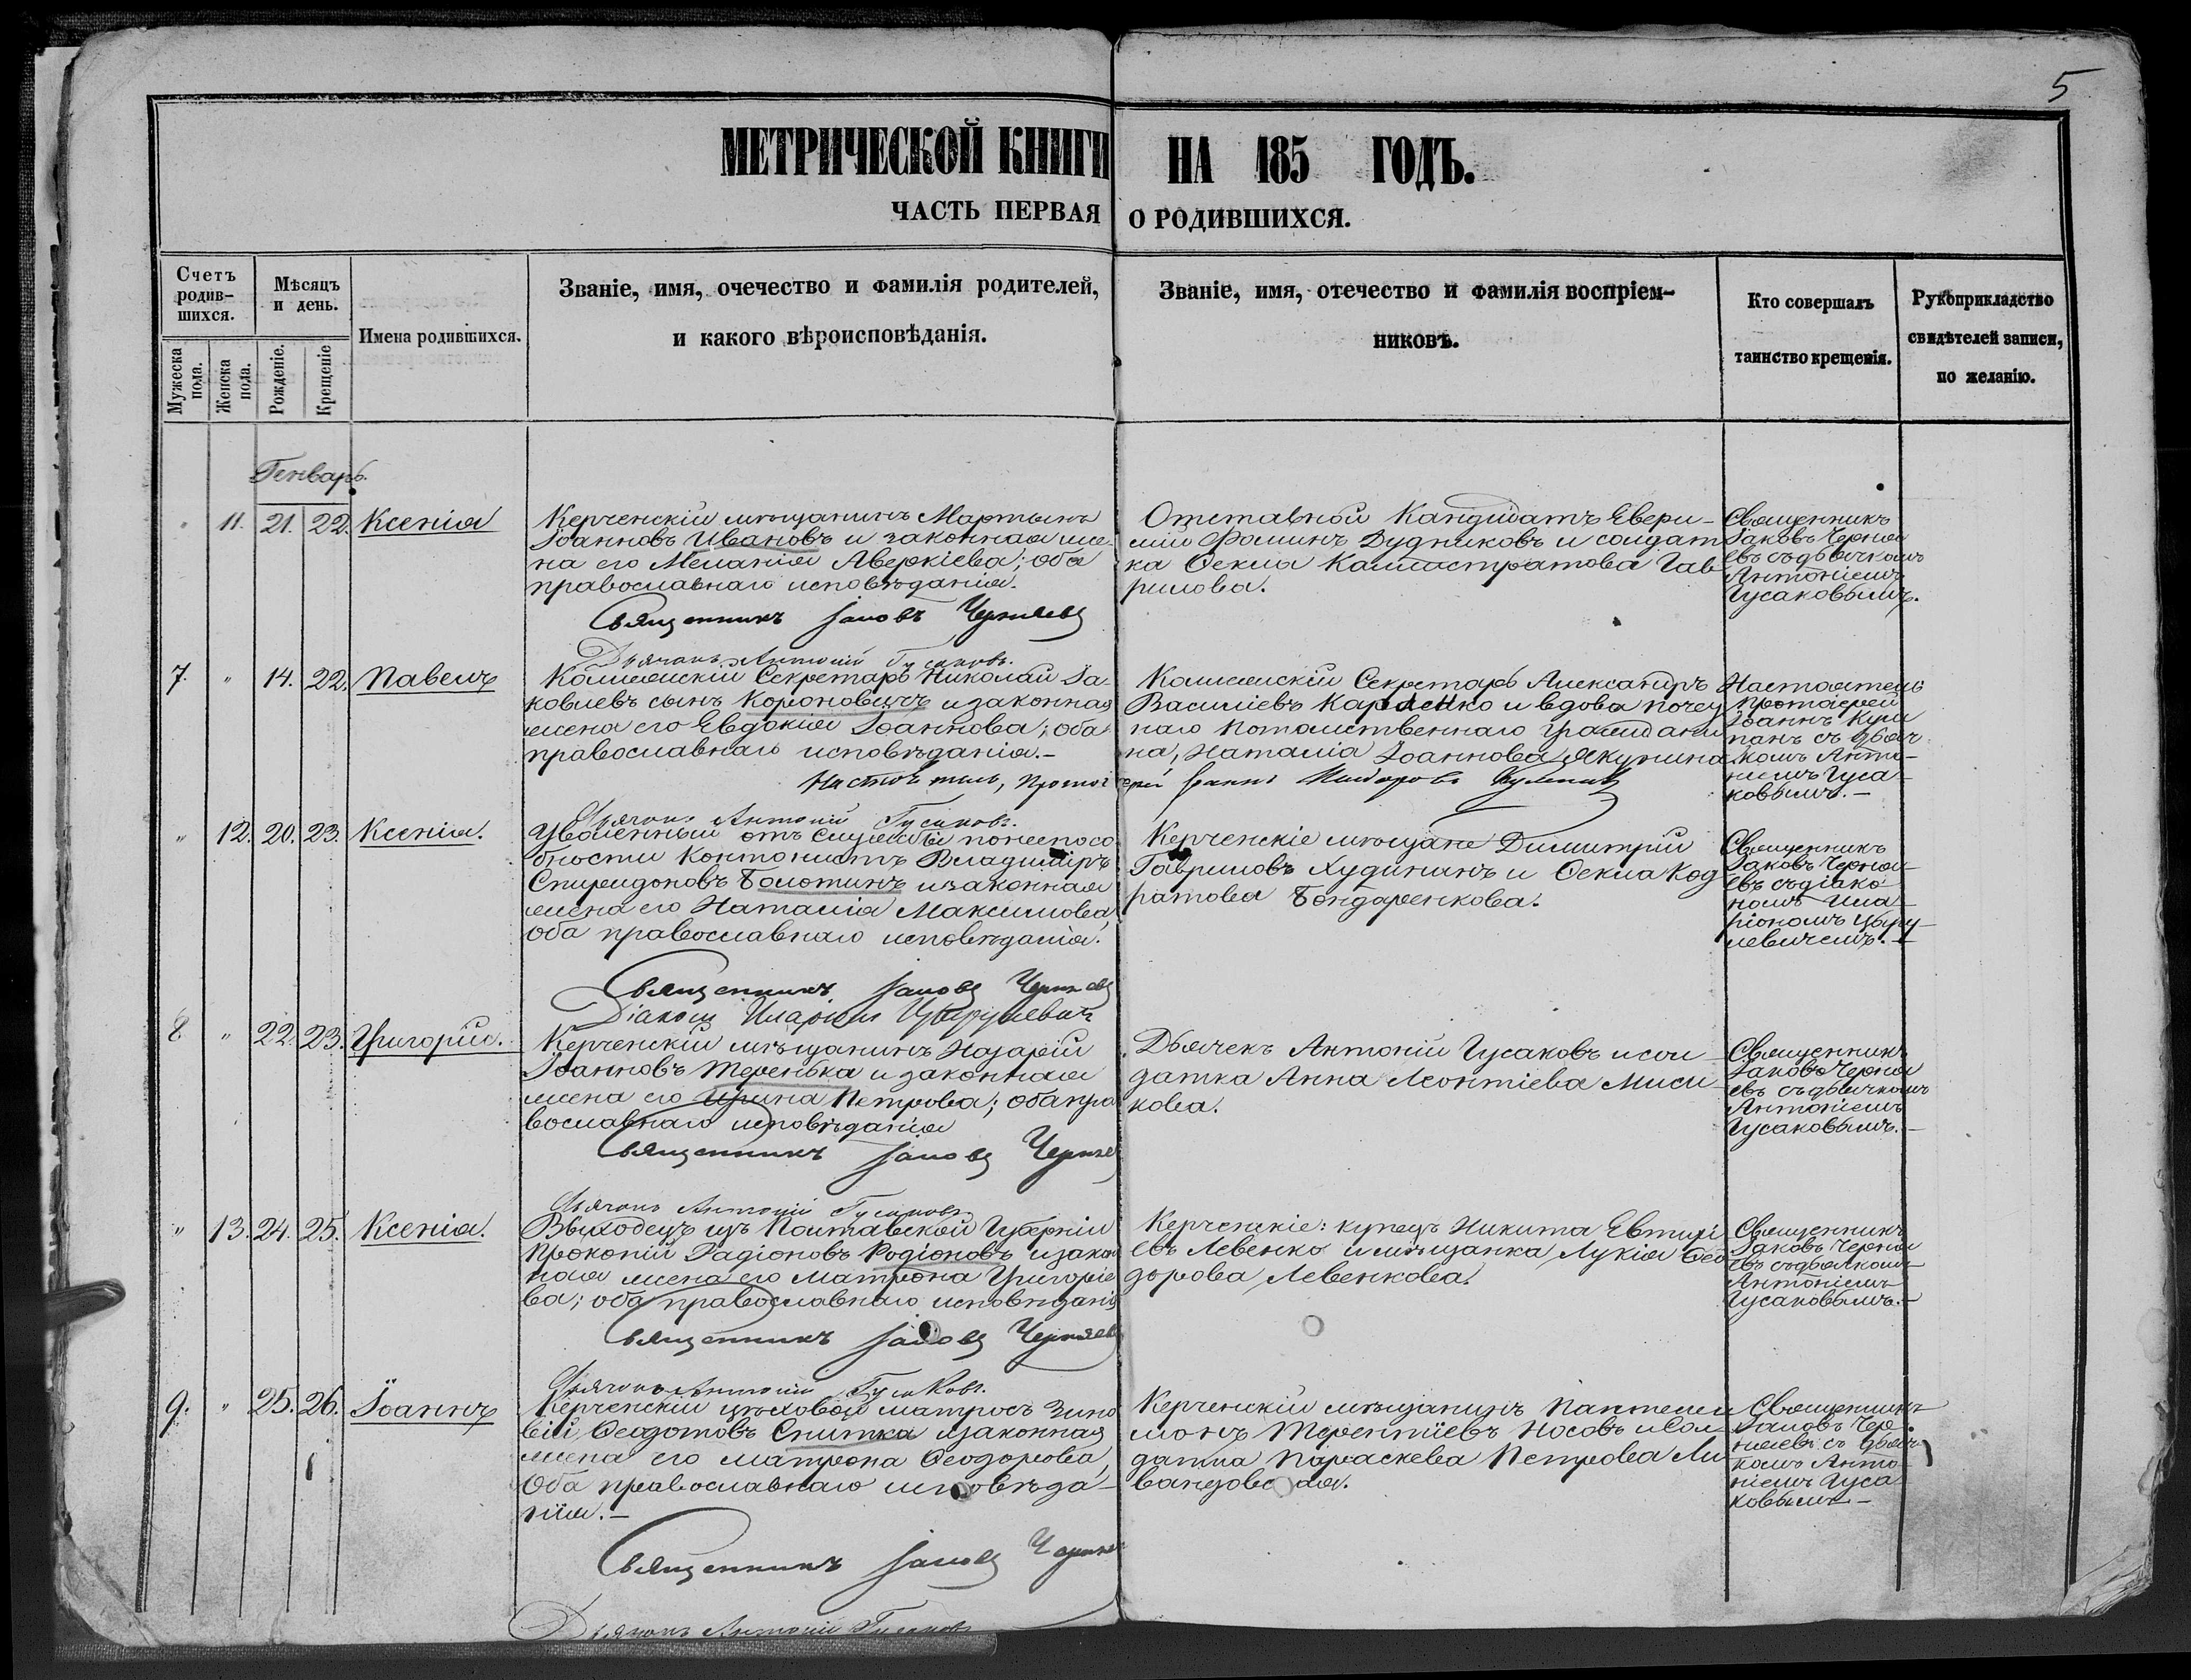 5
МЕТРИЧЕСКОЙ КНИГИ НА 185 ГОДЪ.
ЧАСТЬ ПЕРВАЯ О РОДИВШИХСЯ.
Счетъ родив-шихся.
Мужеска пола.
Женска пола.
Мѣсяцъ и день.
Рожденіе.
Крещеніе
Имена родившихся.
Званіе, имя, очечество и фамилія родителей,
и какого вѣроисповѣданія.
Званіе, имя, отечество и фамилія воспріем-
никовъ.
Кто совершалъ
таинство крещенія.
Рукоприкладство
свидѣтелей записи,
по желанію.
Генварь.
" 11. 21. 22. Ксенія
Керченскій мѣщанинъ Мартынъ
Іоанновъ Ивановъ и законная же-
на его Меланія Аверкіева; оба
православнаго исповѣданія.
Священникъ Іаковъ Черняевъ
Дьячокъ Антоній Гусаковъ.
Отставной Кандидатъ Евери-
мій Фоминъ Дудниковъ и солдат
ка Ѳекла Каллистратова Гав
рилова.
Священникъ
Іаковъ Черня
евъ съ дьячкомъ
Антоніемъ
Гусаковымъ.
7. " 14. 22. Павелъ
Коллежскій Секретарь Николай Іа-
ковлевъ сынъ Короновичъ и законная
жена его Евдокія Іоаннова; оба
православнаго исповѣданія.-
Настоятель, Протоіерей Іоаннъ
Дьячокъ Антоній Гусаковъ.
Коллежскій Секретарь Александръ
Василіевъ Карпенко и вдова почет
наго потомственнаго гражданн
на, Наталія Іоаннова Якунина
Настоятель
Протоіерей
Іоаннъ Кум
панъ съ дьяч
комъ Анто-
ніемъ Гуса-
ковымъ.-
" 12. 20. 23. Ксенія.
Уволенный отъ службы по неспосо
бности Контонистъ Владиміръ
Спиридоновъ Болотинъ и законная
жена его Наталія Максимова,
оба православнаго исповѣданія.
Священникъ Іаковъ Черняевъ
Діаконъ Иларіонъ Цырулевичъ
Керченскіе мѣщане Димитрій
Гавриловъ Худининъ и Ѳекла Код
ратова Бондаренкова.
Священникъ
Іаковъ Черня-
евъ съ діако-
номъ Ила-
ріономъ Цыру-
левичемъ.-
8 " 22. 23. Григорій.
Керченскій мѣщанинъ Назарій
Іоанновъ Теренька и законная
жена его Ирина Петрова; оба пра
вославнаго исповѣданія
Священникъ Іаковъ Черняев
Дьячокъ Антоній Гусаковъ
Дьячекъ Антоній Гусаковъ и сол
датка Анна Леонтіева Миси
кова.
Священникъ
Іаковъ Черня
евъ съ дьячкомъ
Антоніемъ
Гусаковымъ.-
" 13. 24. 25. Ксенія.
Выходецъ изъ Полтавской Губерніи
Прокопій Радіоновъ Родіоновъ и закон
ная жена его Матрона Григоріе
ва; оба православнаго исповѣданія
Священникъ Іаковъ Черняев
Дьячокъ Антоній Гусаковъ.
Керченскіе: купецъ Никита Евтихі
евъ Левенко и мѣщанка Лукія Ѳео
дорова Левенкова.
Священникъ
Іаковъ Черня
евъ съ дьячкомъ
Антоніемъ
Гусаковымъ.-
9. " 25. 26. Іоаннъ
Керченскій цѣховой матросъ Зино
вій Ѳеодотовъ Спитка и законная
жена его Матрона Ѳеодорова,
оба православнаго исповѣда-
нія.-
Священникъ Іаковъ Черняе
Дьячокъ Антоній Гусаковъ
Керченскій мѣщанинъ Пантелеи
монъ Терентіевъ Носовъ и Сол-
датка Параскева Петрова Ли
вандовская.
Священникъ
Іаковъ Чер-
няевъ съ дьяч
комъ Анто-
ніемъ Гуса
ковымъ-